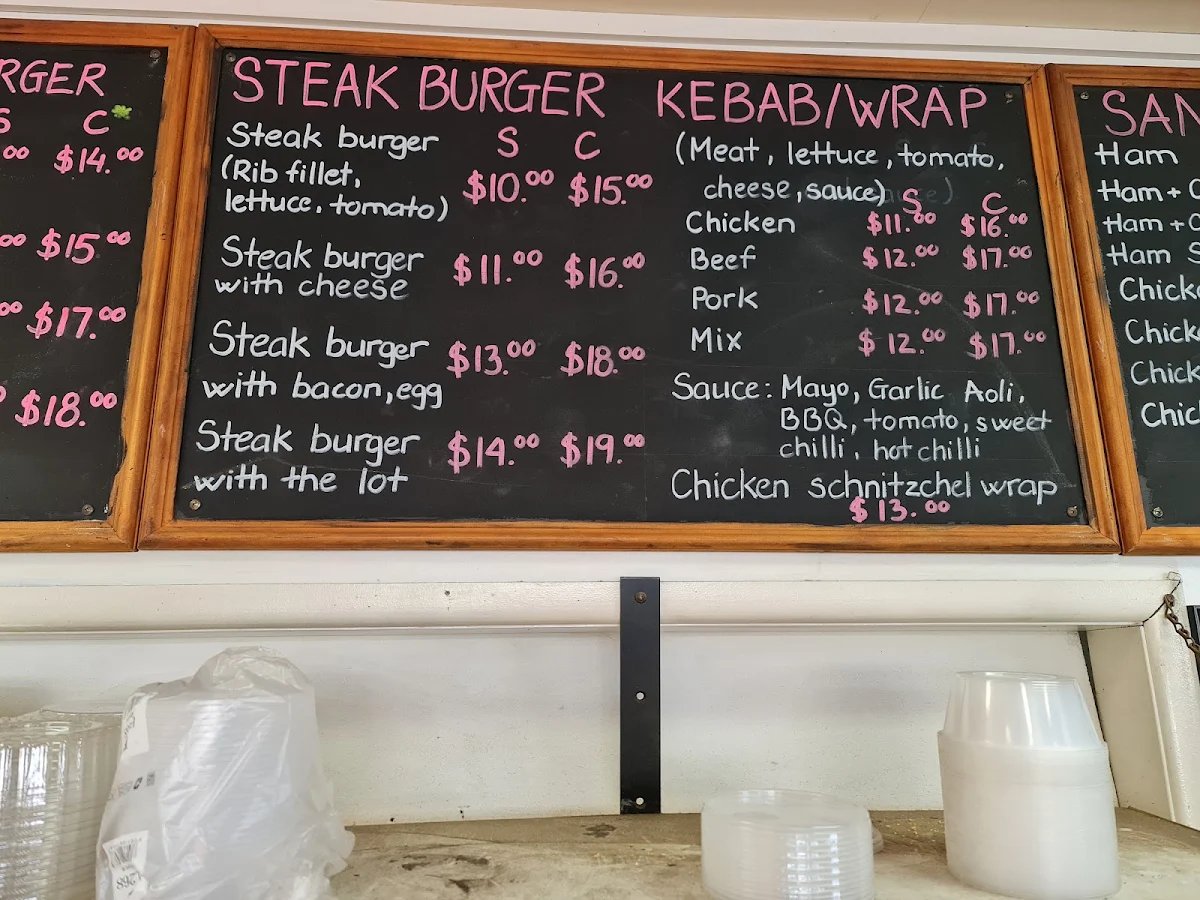 RGER
S C
00 $14.00
00 $15.00
00 $17.00
$18.00
STEAK BURGER
S C
Steak burger
(Rib fillet,
lettuce, tomato) $10.00 $15.00
Steak burger
with cheese $11.00 $16.00
Steak burger
with bacon, egg $13.00 $18.00
Steak burger
with the lot $14.00 $19.00
KEBAB/WRAP
(Meat, lettuce, tomato,
cheese, sauce)
S C
Chicken $11.00 $16.00
Beef $12.00 $17.00
Pork $12.00 $17.00
Mix $12.00 $17.00
Sauce: Mayo, Garlic Aoli,
BBQ, tomato, sweet
chilli, hot chilli
Chicken schnitzchel wrap
$13.00
SAN
Ham
Ham + C
Ham + C
Ham S
Chick
Chick
Chick
Chic